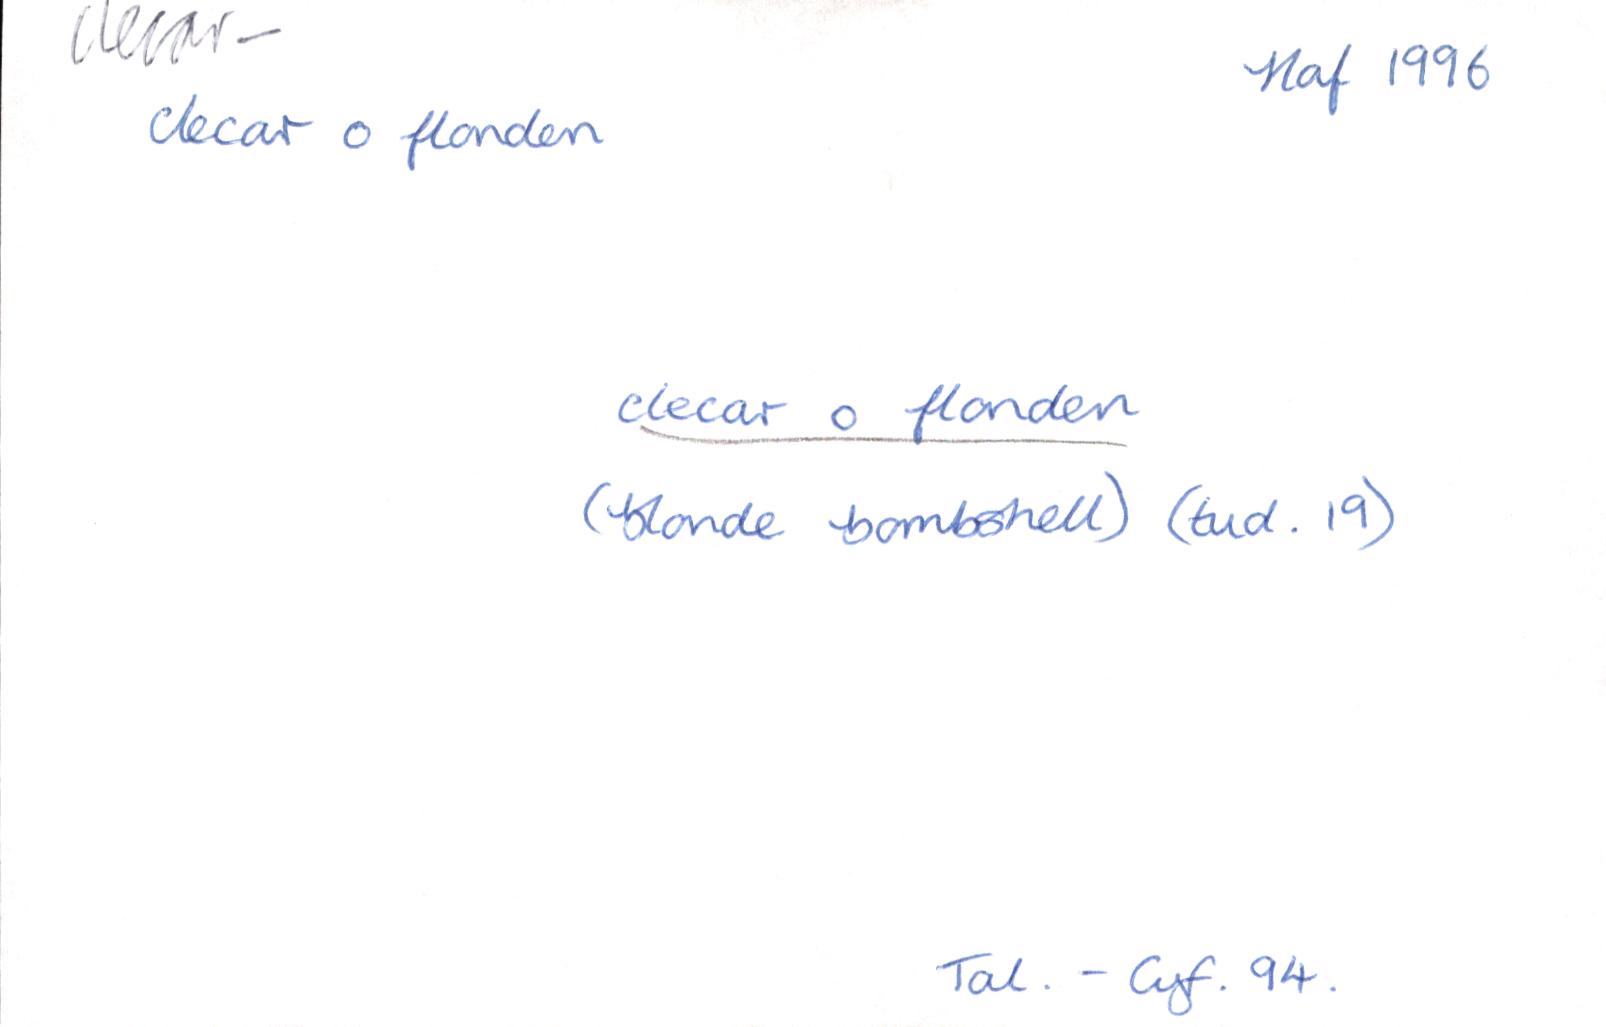 clecar-
Haf 1996
clecar o flonden
clecar o flonden
(blonde bombshell) (tud. 19)
Tal. - Cyf. 94.